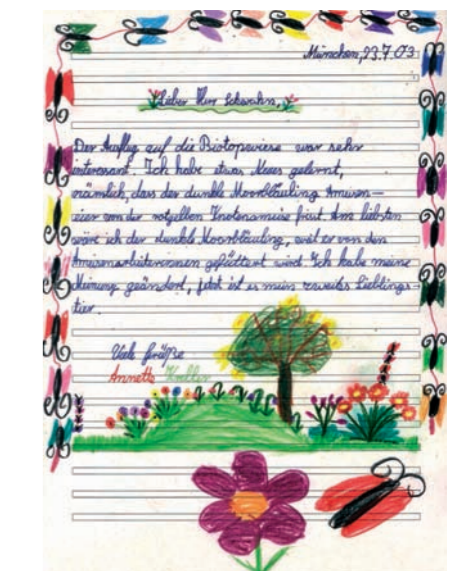 München, 23.7.03
Lieber Herr Schwahn,
Der Ausflug auf die Biotopwiese war sehr
interessant. Ich habe etwas Neues gelernt,
nämlich, dass der dunkle Moorbläuling Ameisen-
eier von der rotgelben Knotenameise frisst. Am liebsten
wäre ich der dunkle Moorbläuling, weil er von den
Ameisenarbeiterinnen gefüttert wird. Ich habe meine
Meinung geändert, jetzt ist es mein zweites Lieblings-
tier.
Viele Grüße
Annette